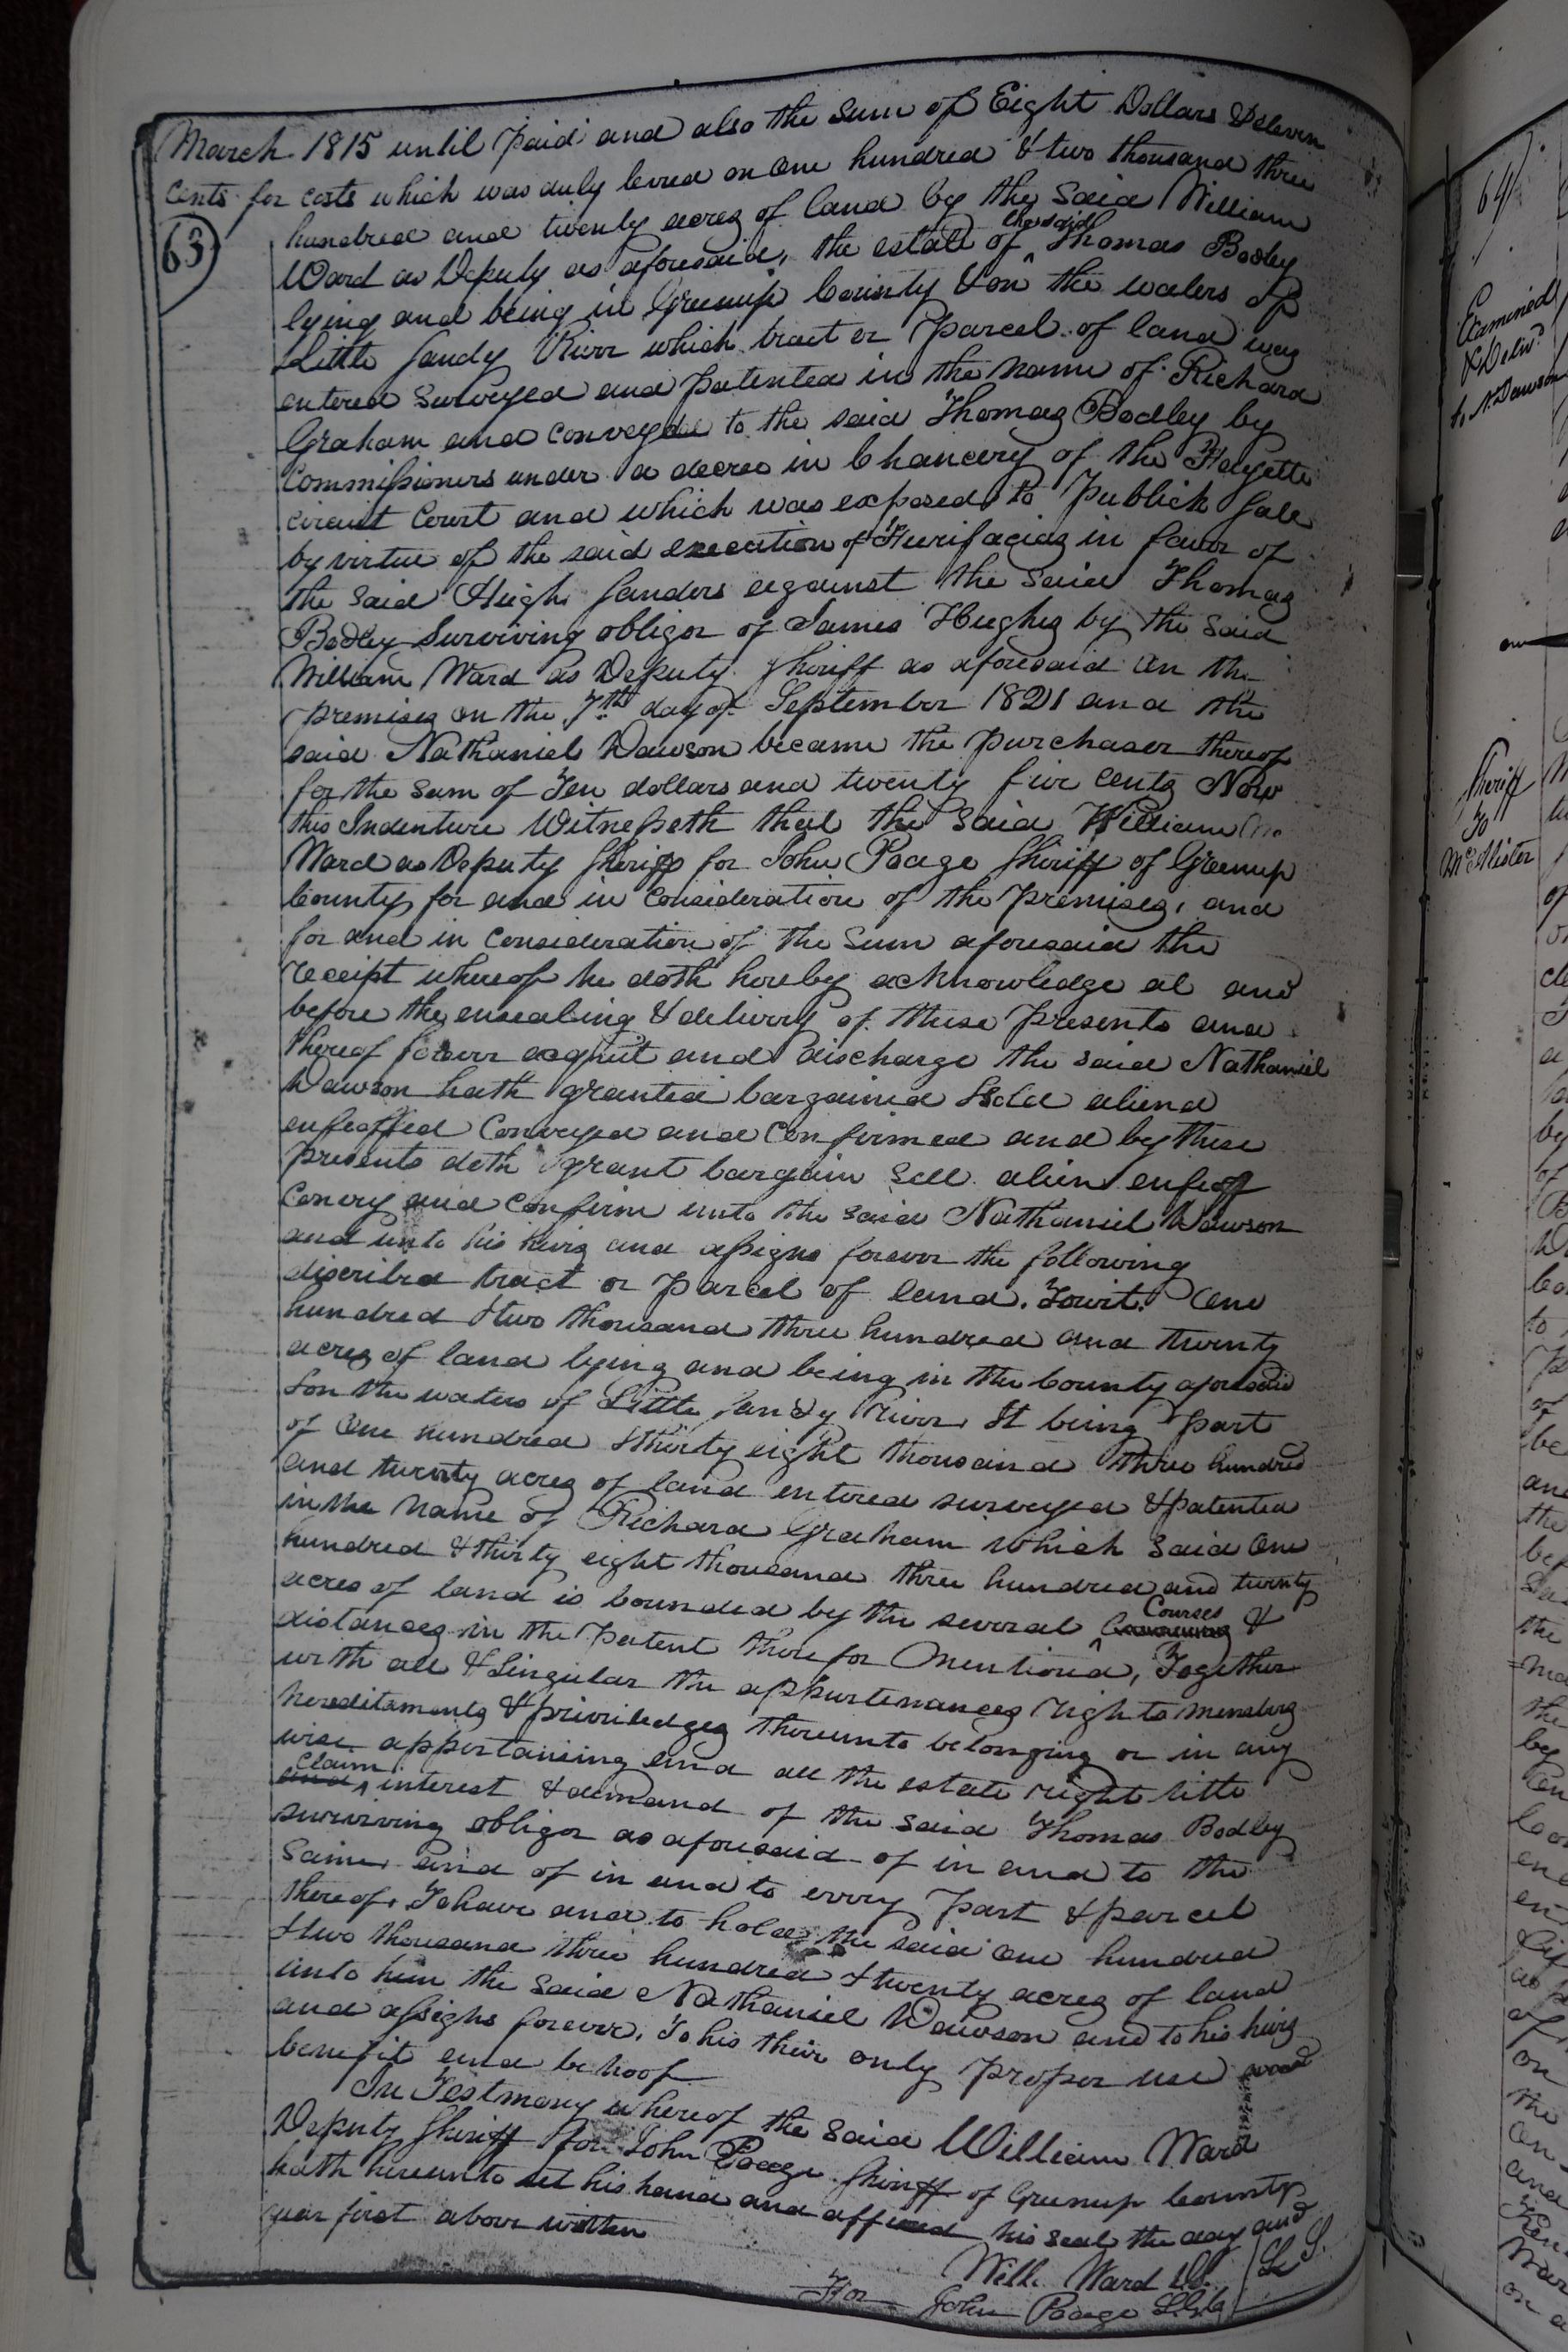 March 1815 until paid and also the Sum of Eight Dollars & Eleven
Cents for costs which was duly levied on One hundred & two thousand three
63
hundred and twenty acres of land by the said William
Ward as Deputy as aforesaid, the estate of the said Thomas Bodley
lying and being in Greenup County & on the waters of
Little Sandy River which tract or parcel of land was
entered Surveyed and patented in the name of Richard
Graham and conveyed to the said Thomas Bodley by
Commissioners under a decree in Chancery of the Fayette
circuit Court and which was exposed to Publick Sale
by virtue of the said execution of Fierifacias in favor of
the said Hugh Sanders against the said Thomas
Bodley Surviving obligor of James Hughes by the said
William Ward as Deputy Sheriff as aforesaid on the
premises on the 7th day of September 1821 and the
said Nathaniel Dawson became the purchaser thereof
for the Sum of Ten dollars and twenty five cents Now
this Indenture Witnesseth that the said William
Ward as Deputy Sheriff for John Poage Sheriff of Greenup
County for and in consideration of the premises, and
for and in consideration of the Sum aforesaid the
receipt whereof he doth hereby acknowledge at and
before the ensealing & delivery of these presents and
thereof forever acquit and discharge the said Nathaniel
Dawson hath granted bargained Sold aliend
enfeoffed Conveyed and Confirmed and by these
presents doth grant bargain Sell alien enfeoff
Convey and confirm unto the said Nathaniel Dawson
and unto his heirs and assigns forever the following
discribed tract or parcel of land. Towit. One
hundred & two thousand three hundred and twenty
acres of land lying and being in the County aforesaid
& on the waters of Little Sandy River, It being part
of One hundred & thirty eight thousand three hundred
and twenty acres of land entered surveyed & patented
in the name of Richard Graham which said One
hundred & thirty eight thousand three hundred and twenty
acres of land is bounded by the several Courses &
distances in the Patent therefor mentioned, Together
with all & Singular the appurtenances rights members
hereditaments & priviledges thereunto belonging or in any
wise appertaining and all the estate right title
and Claim interest & demand of the said Thomas Bodley
surviving obligor as aforesaid of in and to the
Same, and of in and to every part & parcel
thereof. To have and to hold the said One hundred
& two thousand three hundred & twenty acres of land
unto him the said Nathaniel Dawson and to his heirs
and assighs forever, To his their only proper use
benefit and behoof
In Testmony whereof the said William Ward
Deputy Sheriff for John Poage Sheriff of Greenup County
hath hereunto set his hand and affixed his seal the day and
year first above written
Will. Ward D.S. L. S.
For John Poage
64
Examined
& Deliv.d
to N. Dawson
Sheriff
To
McAllister